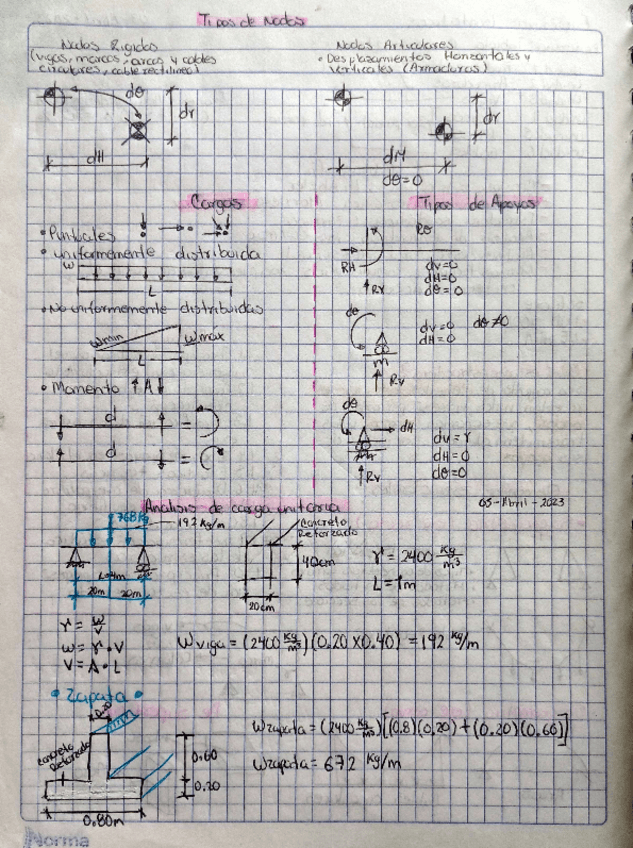 Tipos de Nodos
Nodos Rigidos
(vigas, marcos, arcos y cables
circulares, cable rectilineo)
Nodos Articulares
• Desplazamientos Horizontales y
Verticales (Armaduras)
dθ
dr
dH
dr
dH
dθ=0
Cargas
• Puntuales
• uniformemente distribuida
w
L
• No uniformemente distribuidas
wmin
wmáx
L
• Momento
d
d
Tipos de Apoyos
Rθ
RH
Rv
dv=0
dH=0
dθ=0
dθ
dv=0
dH=0
dθ≠0
Rv
dθ
dH
dv=r
dH=0
dθ=0
Rv
Análisis de carga unitaria
05-Abril-2023
768 Kg
192 Kg/m
L=4m
20m 20m
Concreto
Reforzado
40cm
20cm
γ = 2400 Kg/m³
L = 1m
γ = w/v
w = γ • V
V = A • L
Wviga = (2400 Kg/m³)(0.20 x 0.40) = 192 Kg/m
• Zapata •
0.20
Concreto
Reforzado
0.60
0.20
0.80m
Wzapata = (2400 Kg/m³)[(0.8)(0.20) + (0.20)(0.60)]
Wzapata = 672 Kg/m
Norma